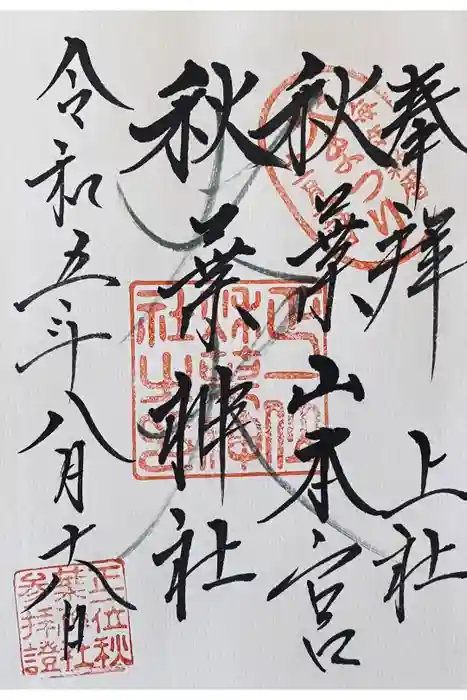 奉拝 上社
秋葉山本宮
秋葉神社
令和五年八月十六日
正一位秋葉神社之璽
正一位秋葉神社参拝證